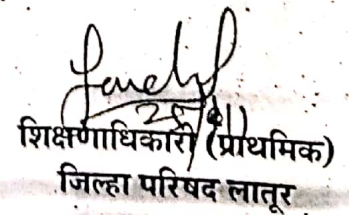 शिक्षणाधिकारी (प्राथमिक)
जिल्हा परिषद लातूर